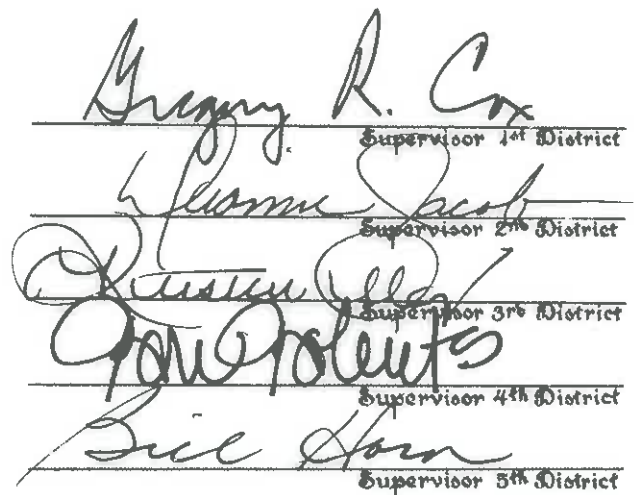 Gregory R. Cox
Supervisor 1st District
Dianne Jacob
Supervisor 2nd District
Kristin
Supervisor 3rd District
Ron Roberts
Supervisor 4th District
Bill Horn
Supervisor 5th District